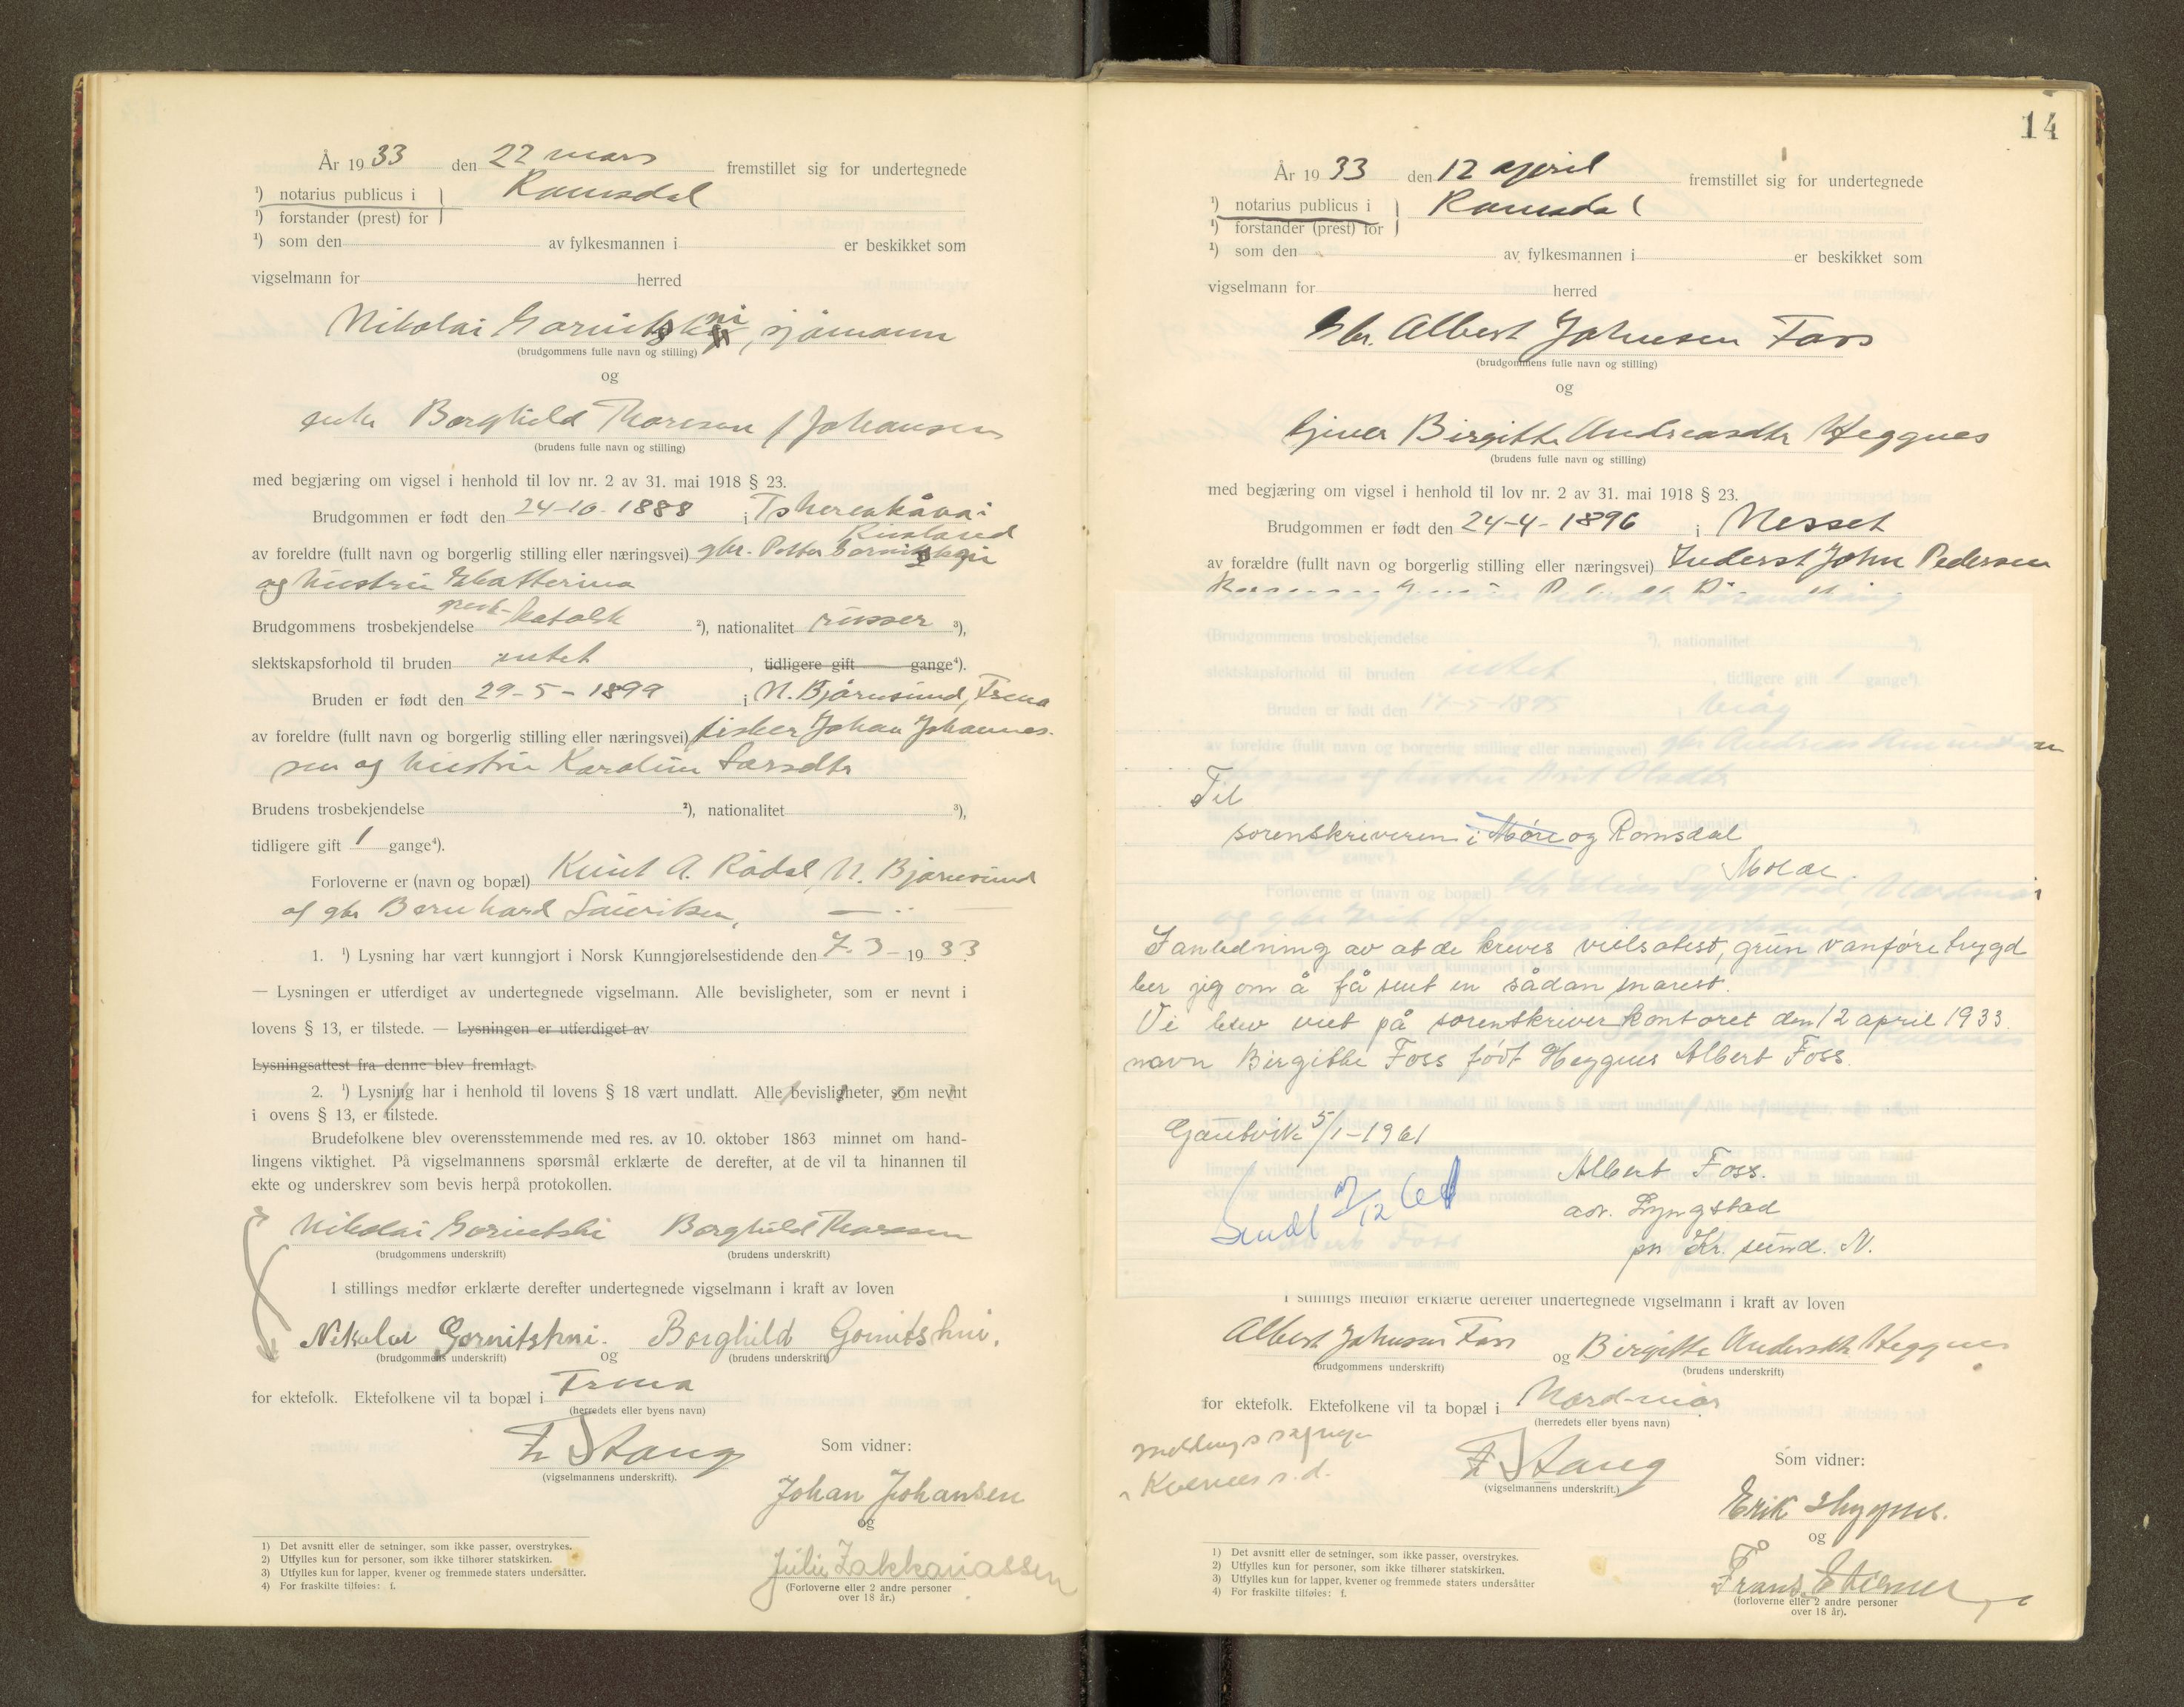 År 1933 den 22 mars fremstillet sig for undertegnede
¹) notarius publicus i Romsdal
¹) forstander (prest) for
¹) som den av fylkesmannen i er beskikket som
vigselmann for herred
Nikolai , sjömann
(brudgommens fulle navn og stilling)
og
enke Borghild Thoresen f Johansen
(brudens fulle navn og stilling)
med begjæring om vigsel i henhold til lov nr. 2 av 31. mai 1918 § 23.
Brudgommen er født den 24-10-1888 i
Russland
av foreldre (fullt navn og borgerlig stilling eller næringsvei) gbr. Petter
og hustru Ekatterina
gresk-
Brudgommens trosbekjendelse katolsk ²), nationalitet russer ³),
slektskapsforhold til bruden intet , tidligere gift gange⁴).
Bruden er født den 29-5-1899 i N. Bjørnsund, Frena
av foreldre (fullt navn og borgerlig stilling eller næringsvei) fisker Johan Johannes-
sen og hustru Karoline Larsdtr
Brudens trosbekjendelse ²), nationalitet ³),
tidligere gift 1 gange⁴).
Forloverne er (navn og bopæl) Knut A. Rødal, N. Bjørnsund
og gbr Bernhard
1. ¹) Lysning har vært kunngjort i Norsk Kunngjørelsestidende den 7.3-1933.
— Lysningen er utferdiget av undertegnede vigselmann. Alle bevisligheter, som er nevnt i
lovens § 13, er tilstede. — Lysningen er utferdiget av
Lysningsattest fra denne blev fremlagt.
2. ¹) Lysning har i henhold til lovens § 18 vært undlatt. Alle bevisligheter, som nevnt
i ovens § 13, er tilstede.
Brudefolkene blev overensstemmende med res. av 10. oktober 1863 minnet om hand-
lingens viktighet. På vigselmannens spørsmål erklærte de derefter, at de vil ta hinannen til
ekte og underskrev som bevis herpå protokollen.
Nikolai Gornitski Borghild Thoresen
(brudgommens underskrift) (brudens underskrift)
I stillings medfør erklærte derefter undertegnede vigselmann i kraft av loven
Nikolai Gornitshni. og Borghild Gornitshni.
(brudgommens underskrift) (brudens underskrift)
for ektefolk. Ektefolkene vil ta bopæl i Frena
(herredets eller byens navn)
Fr Stang
(vigselmannens underskrift).
Som vidner:
Johan Johansen
og
Julie Zakkariassen
(Forloverne eller 2 andre personer
over 18 år.)
1) Det avsnitt eller de setninger, som ikke passer, overstrykes.
2) Utfylles kun for personer, som ikke tilhører statskirken.
3) Utfylles kun for lapper, kvener og fremmede staters undersåtter.
4) For fraskilte tilføies: f.
14
År 1933 den 12 april fremstillet sig for undertegnede
¹) notarius publicus i Romsdal
¹) forstander (prest) for
¹) som den av fylkesmannen i er beskikket som
vigselmann for herred
Gbr. Albert Johnsen Foss
(brudgommens fulle navn og stilling)
og
Birgitte Andreasdtr Heggnes
(brudens fulle navn og stilling)
med begjæring om vigsel i henhold til lov nr. 2 av 31. mai 1918 § 23.
Brudgommen er født den 24-4-1896 i Nesset
av forældre (fullt navn og borgerlig stilling eller næringsvei) Inderst John Pedersen
(Brudgommens trosbekjendelse ²), nationalitet ³),
slektskapsforhold til bruden intet , tidligere gift 1 gange⁴).
Bruden er født den 17-5-1895 i
av foreldre (fullt navn og borgerlig stilling eller næringsvei) gbr Andreas
Heggnes og hustru Olsdtr
Til
sorenskriveren i Møre og Romsdal
Molde.
Forloverne er (navn og bopæl)
I anledning av at de kreves vielsatest, grun vanføre trygd
ber jeg om å få sent en sådan snarest.
Vi blev viet på sorenskriver kontoret den 12 april 1933.
navn Birgitte Foss født Heggnes Albert Foss.
Gautvik 5/1-1961
Albert Foss.
adr. Lyngstad
pr Kr. sund. N.
Sendt
I stillings medfør erklærte derefter undertegnede vigselmann i kraft av loven
Albert Johnsen Foss og Birgitte Andersdtr. Heggnes
(brudgommens underskrift) (brudens underskrift)
for ektefolk. Ektefolkene vil ta bopæl i
(herredets eller byens navn)
Kvernes s.d.
Fr Stang
(vigselmannens underskrift.)
Som vidner:
Erik Heggnes.
og
Frans
(forloverne eller 2 andre personer
over 18 år).
1) Det avsnitt eller de setninger, som ikke passer, overstrykes.
2) Utfylles kun for personer, som ikke tilhører statskirken.
3) Utfylles kun for lapper, kvener og fremmede staters undersåtter
4) For fraskilte tilføies: f.